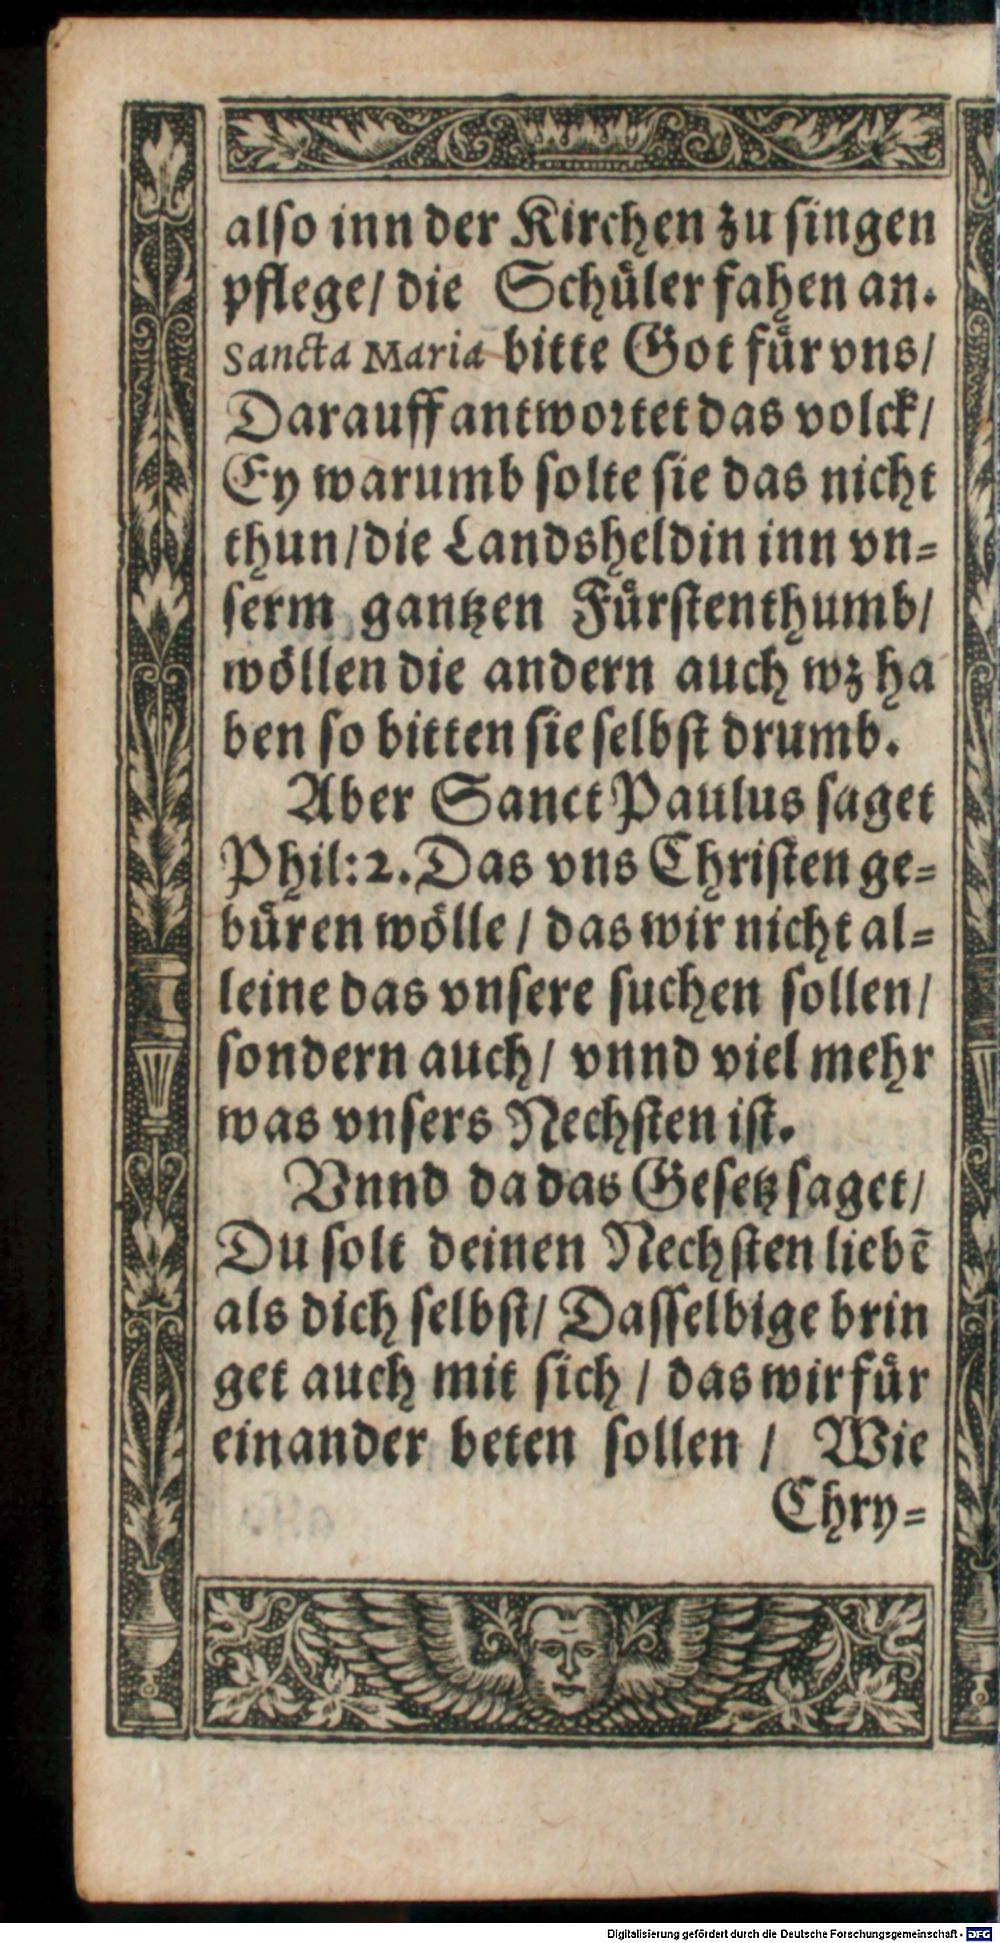 also inn der Kirchen zu singen
pflege/ die Schuͤler fahen an.
Sancta Maria bitte Got fuͤr vns/
Darauff antwortet das volck/
Ey warumb solte sie das nicht
thun/ die Landsheldin inn vn=
serm gantzen Fuͤrstenthumb/
woͤllen die andern auch wz ha
ben so bitten sie selbst drumb.
Aber Sanct Paulus saget
Phil: 2. Das vns Christen ge=
buͤren woͤlle / das wir nicht al=
leine das vnsere suchen sollen/
sondern auch/ vnnd viel mehr
was vnsers Nechsten ist.
Vnnd da das Gesetz saget/
Du solt deinen Nechsten liebẽ
als dich selbst/ Dasselbige brin
get auch mit sich / das wir fuͤr
einander beten sollen / Wie
Chry=
Digitalisierung gefördert durch die Deutsche Forschungsgemeinschaft - DFG